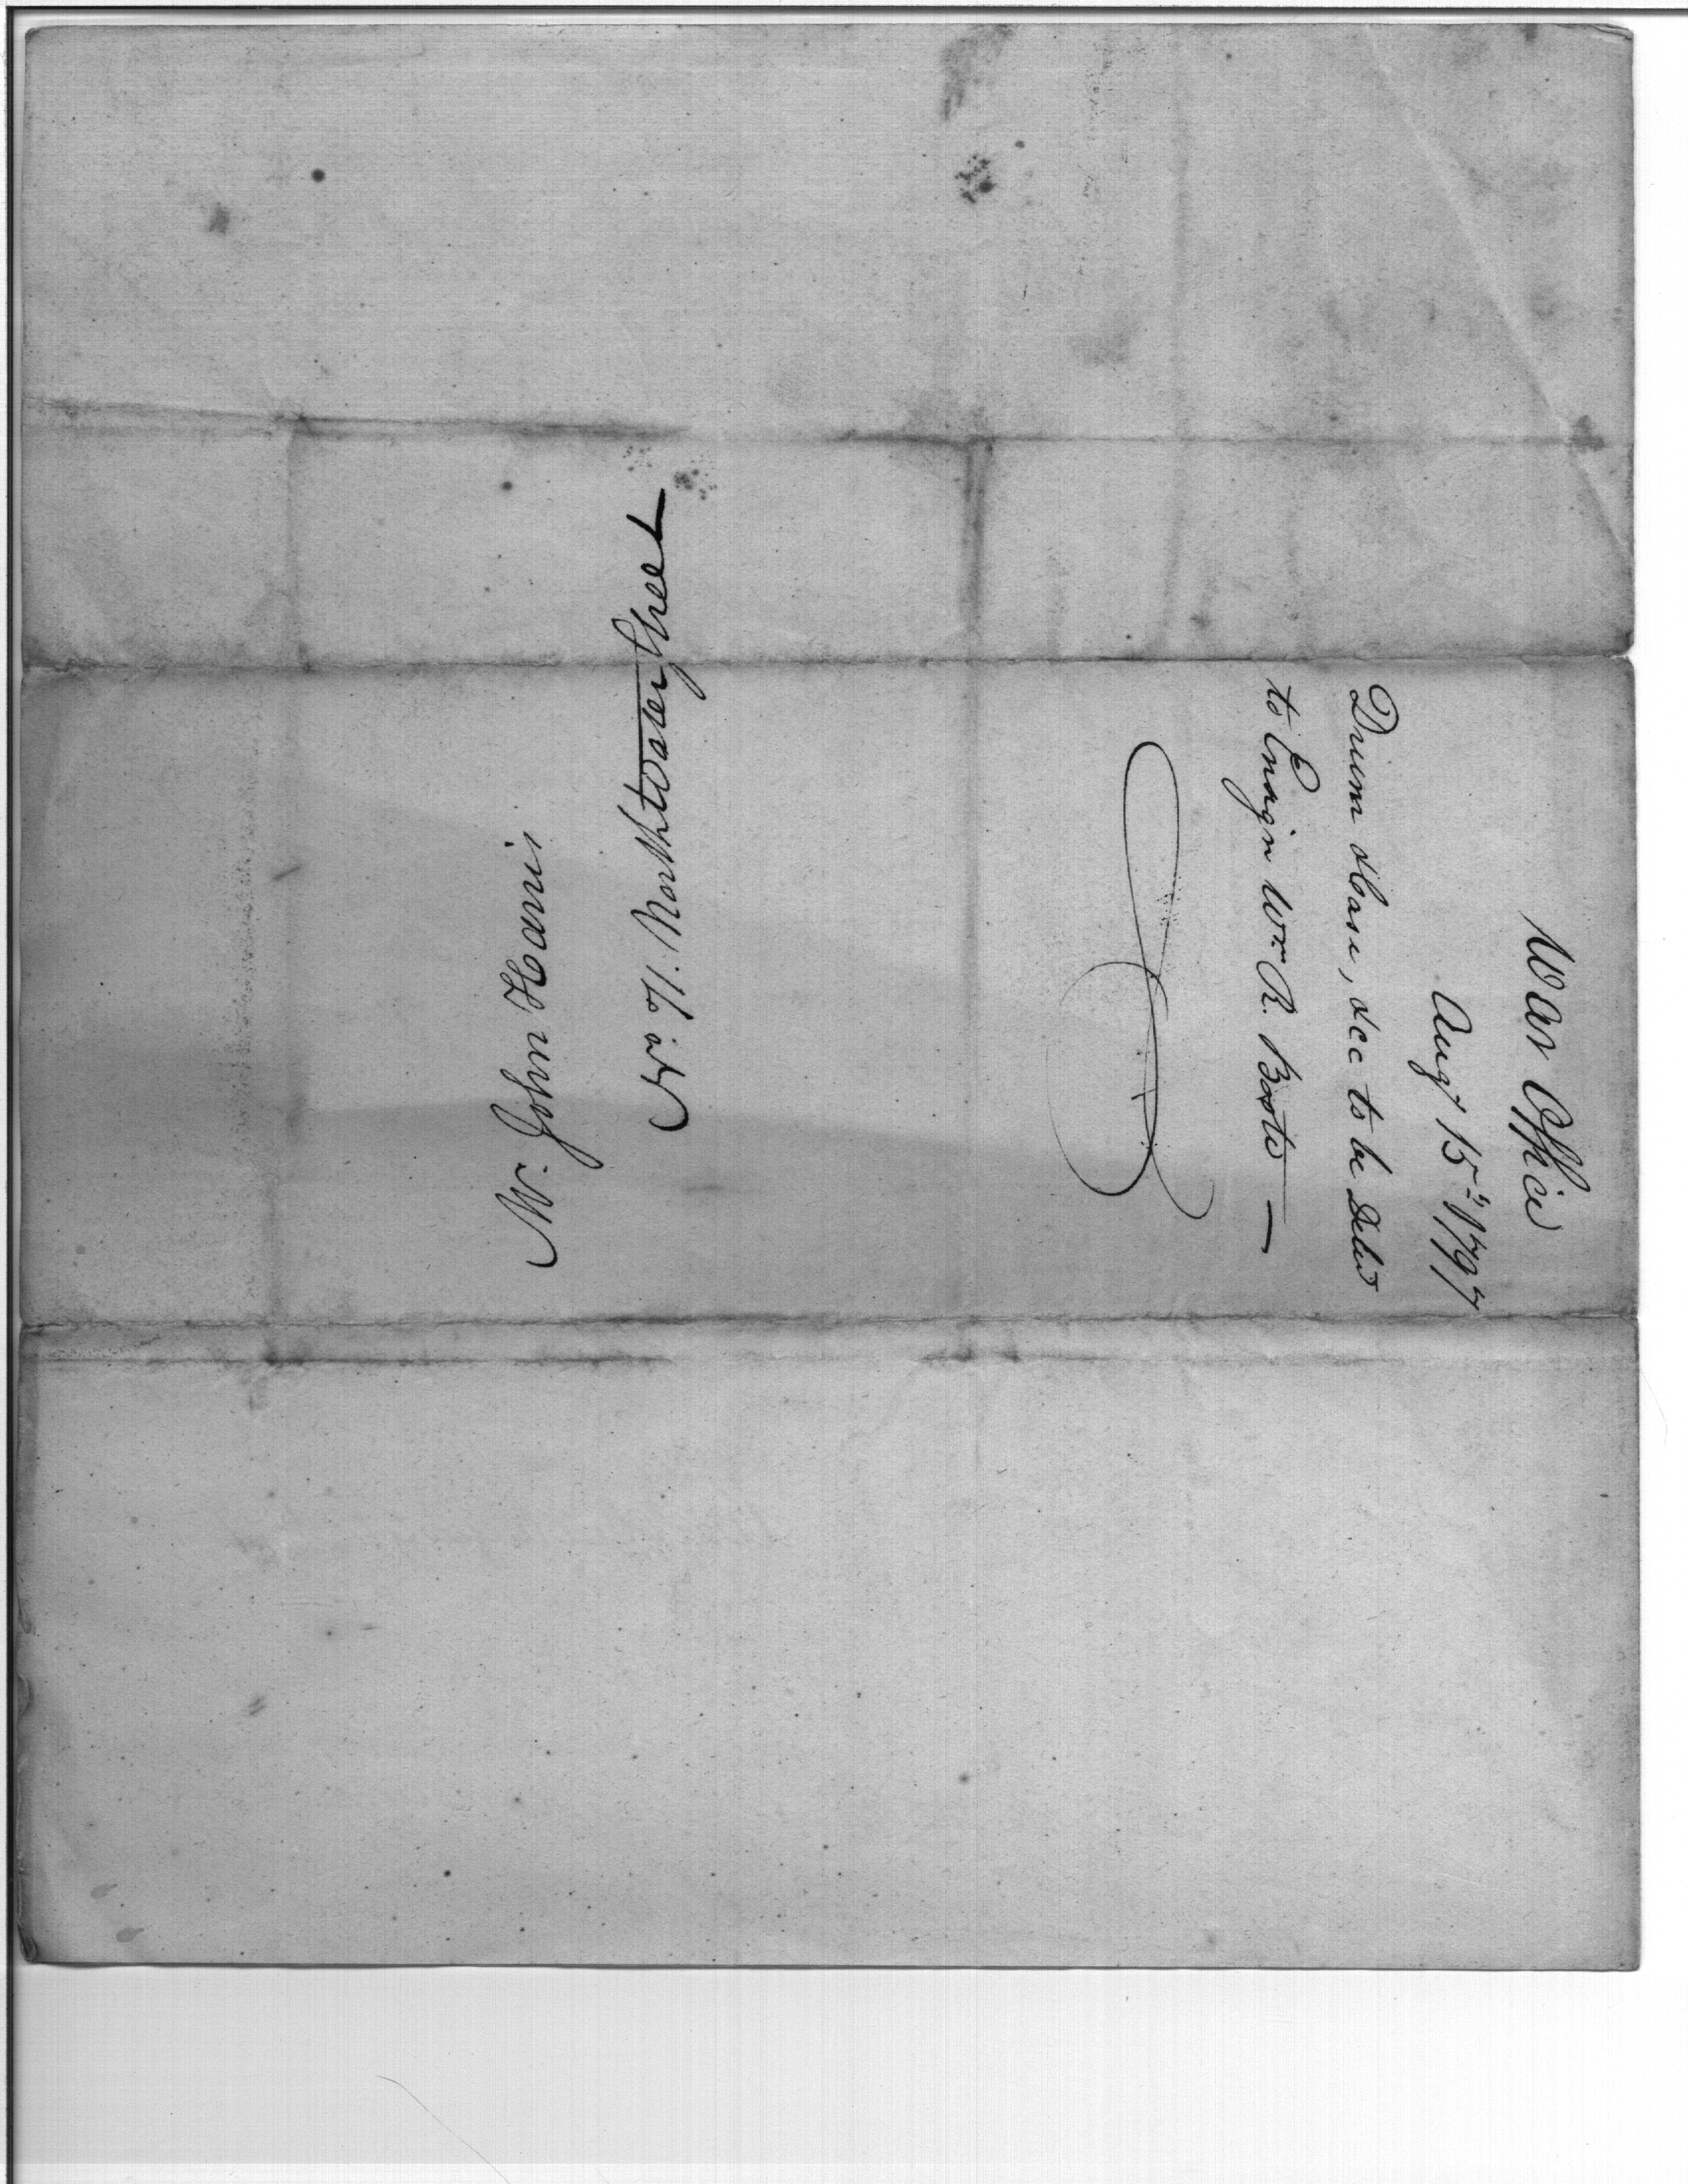 War Office
Augt 15th 1797
Drum &c to be Deld
to Ensign Wm R. Boote —
Mr. John Harris
No. 71. North Water Street